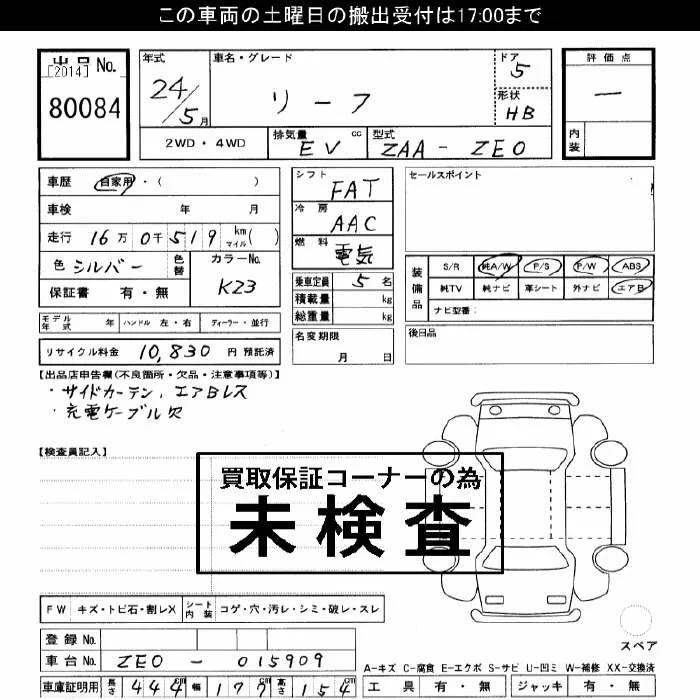 この車両の土曜日の搬出受付は17:00まで
出品 No.
[2014]
80084
年式
24/5月
車名・グレード
リーフ
ドア
5
形状
HB
評価点
一
内装
2WD・4WD
排気量 cc
EV
型式
ZAA-ZE0
車歴 自家用・( )
車検 年 月
走行 16万0千519 km マイル( )
色 シルバー
色替
カラーNo.
K23
保証書 有・無
モデル年式 年 ハンドル 左・右 ディーラー・並行
リサイクル料金 10,830 円 預託済
シフト
FAT
冷房
AAC
燃料
電気
乗車定員 5 名
積載量 kg
総重量 kg
名変期限
月 日
セールスポイント
装備品
S/R 純A/W P/S P/W ABS
純TV 純ナビ 革シート 外ナビ エアB
ナビ型番:
後日品
【出品店申告欄(不良箇所・欠品・注意事項等)】
・サイドカーテン、エアBレス
・充電ケーブル欠
【検査員記入】
買取保証コーナーの為
未検査
FW キズ・トビ石・割レX
シート内装 コゲ・穴・汚レ・シミ・破レ・スレ
登録 No.
車台 No. ZE0-015909
車庫証明用 長さ 444 cm 幅 177 cm 高さ 154 cm
スペア
A-キズ C-腐食 E-エクボ S-サビ U-凹ミ W-補修 XX-交換済
工具 有・無 ジャッキ 有・無